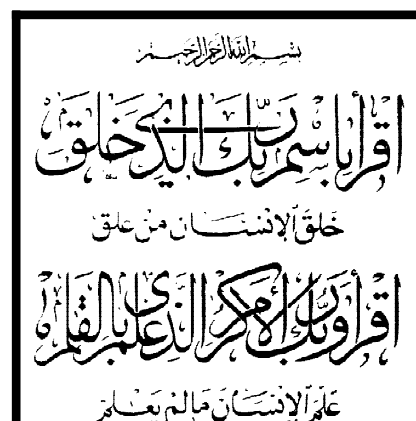 بسم الله الرحمن الرحيم
اقرأ باسم ربك الذي خلق
خلق الإنسان من علق
اقرأ وربك الأكرم الذي علم بالقلم
علم الإنسان ما لم يعلم